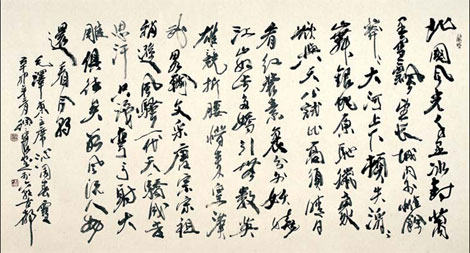 北國風光千里冰封萬
里雪飄望長城内外惟餘
莽〻大河上下頓失滔〻
舞銀蛇原馳蠟象
欲與天公試比高須晴日
看紅裝素裹分外妖嬈
江山如此多嬌引無數英
雄競折腰惜秦皇漢
武略輸文采唐宗宋祖
稍遜風騷一代天驕成吉
思汗只識彎弓射大
雕俱往矣數風流人物
還看今朝
毛澤東 沁園春雪